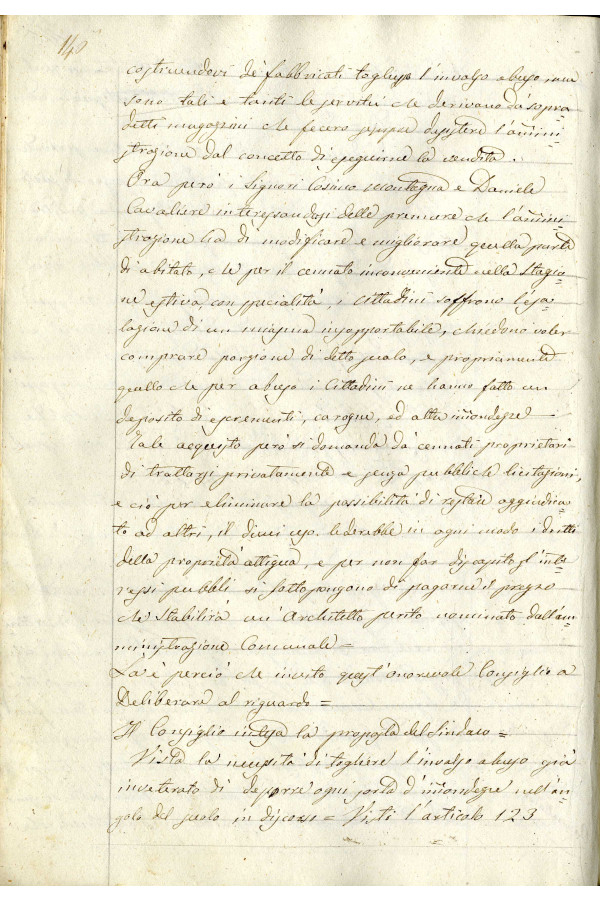 140
costruendovi de' fabbricati togliesse l'invalso abuso, ma
sono tali e tanti le servitù che derivano da' sopra=
detti magazzini che fecero sempre desistere l'ammi=
strazione dal concetto di eseguirne la vendita.
Ora però i Signori Cosimo Montagna e Daniele
Cavaliere interessandosi delle premure che l'ammini=
strazione ha di modificare e migliorare quella parte
di abitato, che per il cennato inconveniente nella stagio=
ne estiva, con specialità, i Cittadini soffrono l'esa=
lazione di un miasma insopportabile, chiedono voler
comprare porzione di detto suolo, e propriamente
quello che per abuso i Cittadini ne hanno fatto un
deposito di escrementi, carogne, ed altre immondezze
Tale acquisto però si domanda da' cennati proprietari
di trattarsi privatamente e senza pubbliche licitazioni,
e ciò per eliminare la possibilità di restare aggiudica=
to ad altri, il che lederebbe in ogni modo i dritti
della proprietà attigua, e per non far discapito gl'inte=
ressi pubbli si sottopongono di pagarne il prezzo
che stabilirà un' Architetto perito nominato dall'am=
ministrazione Comunale=
La è perciò che invito quest'onorevole Consiglio a
Deliberare al riguardo=
Il Consiglio intesa la proposta del Sindaco=
Vista la necessità di togliere l'invalso abuso già
inveterato di deporre ogni sorta d'immondezze nell'an=
golo del suolo in discorso= Visti l'articolo 123